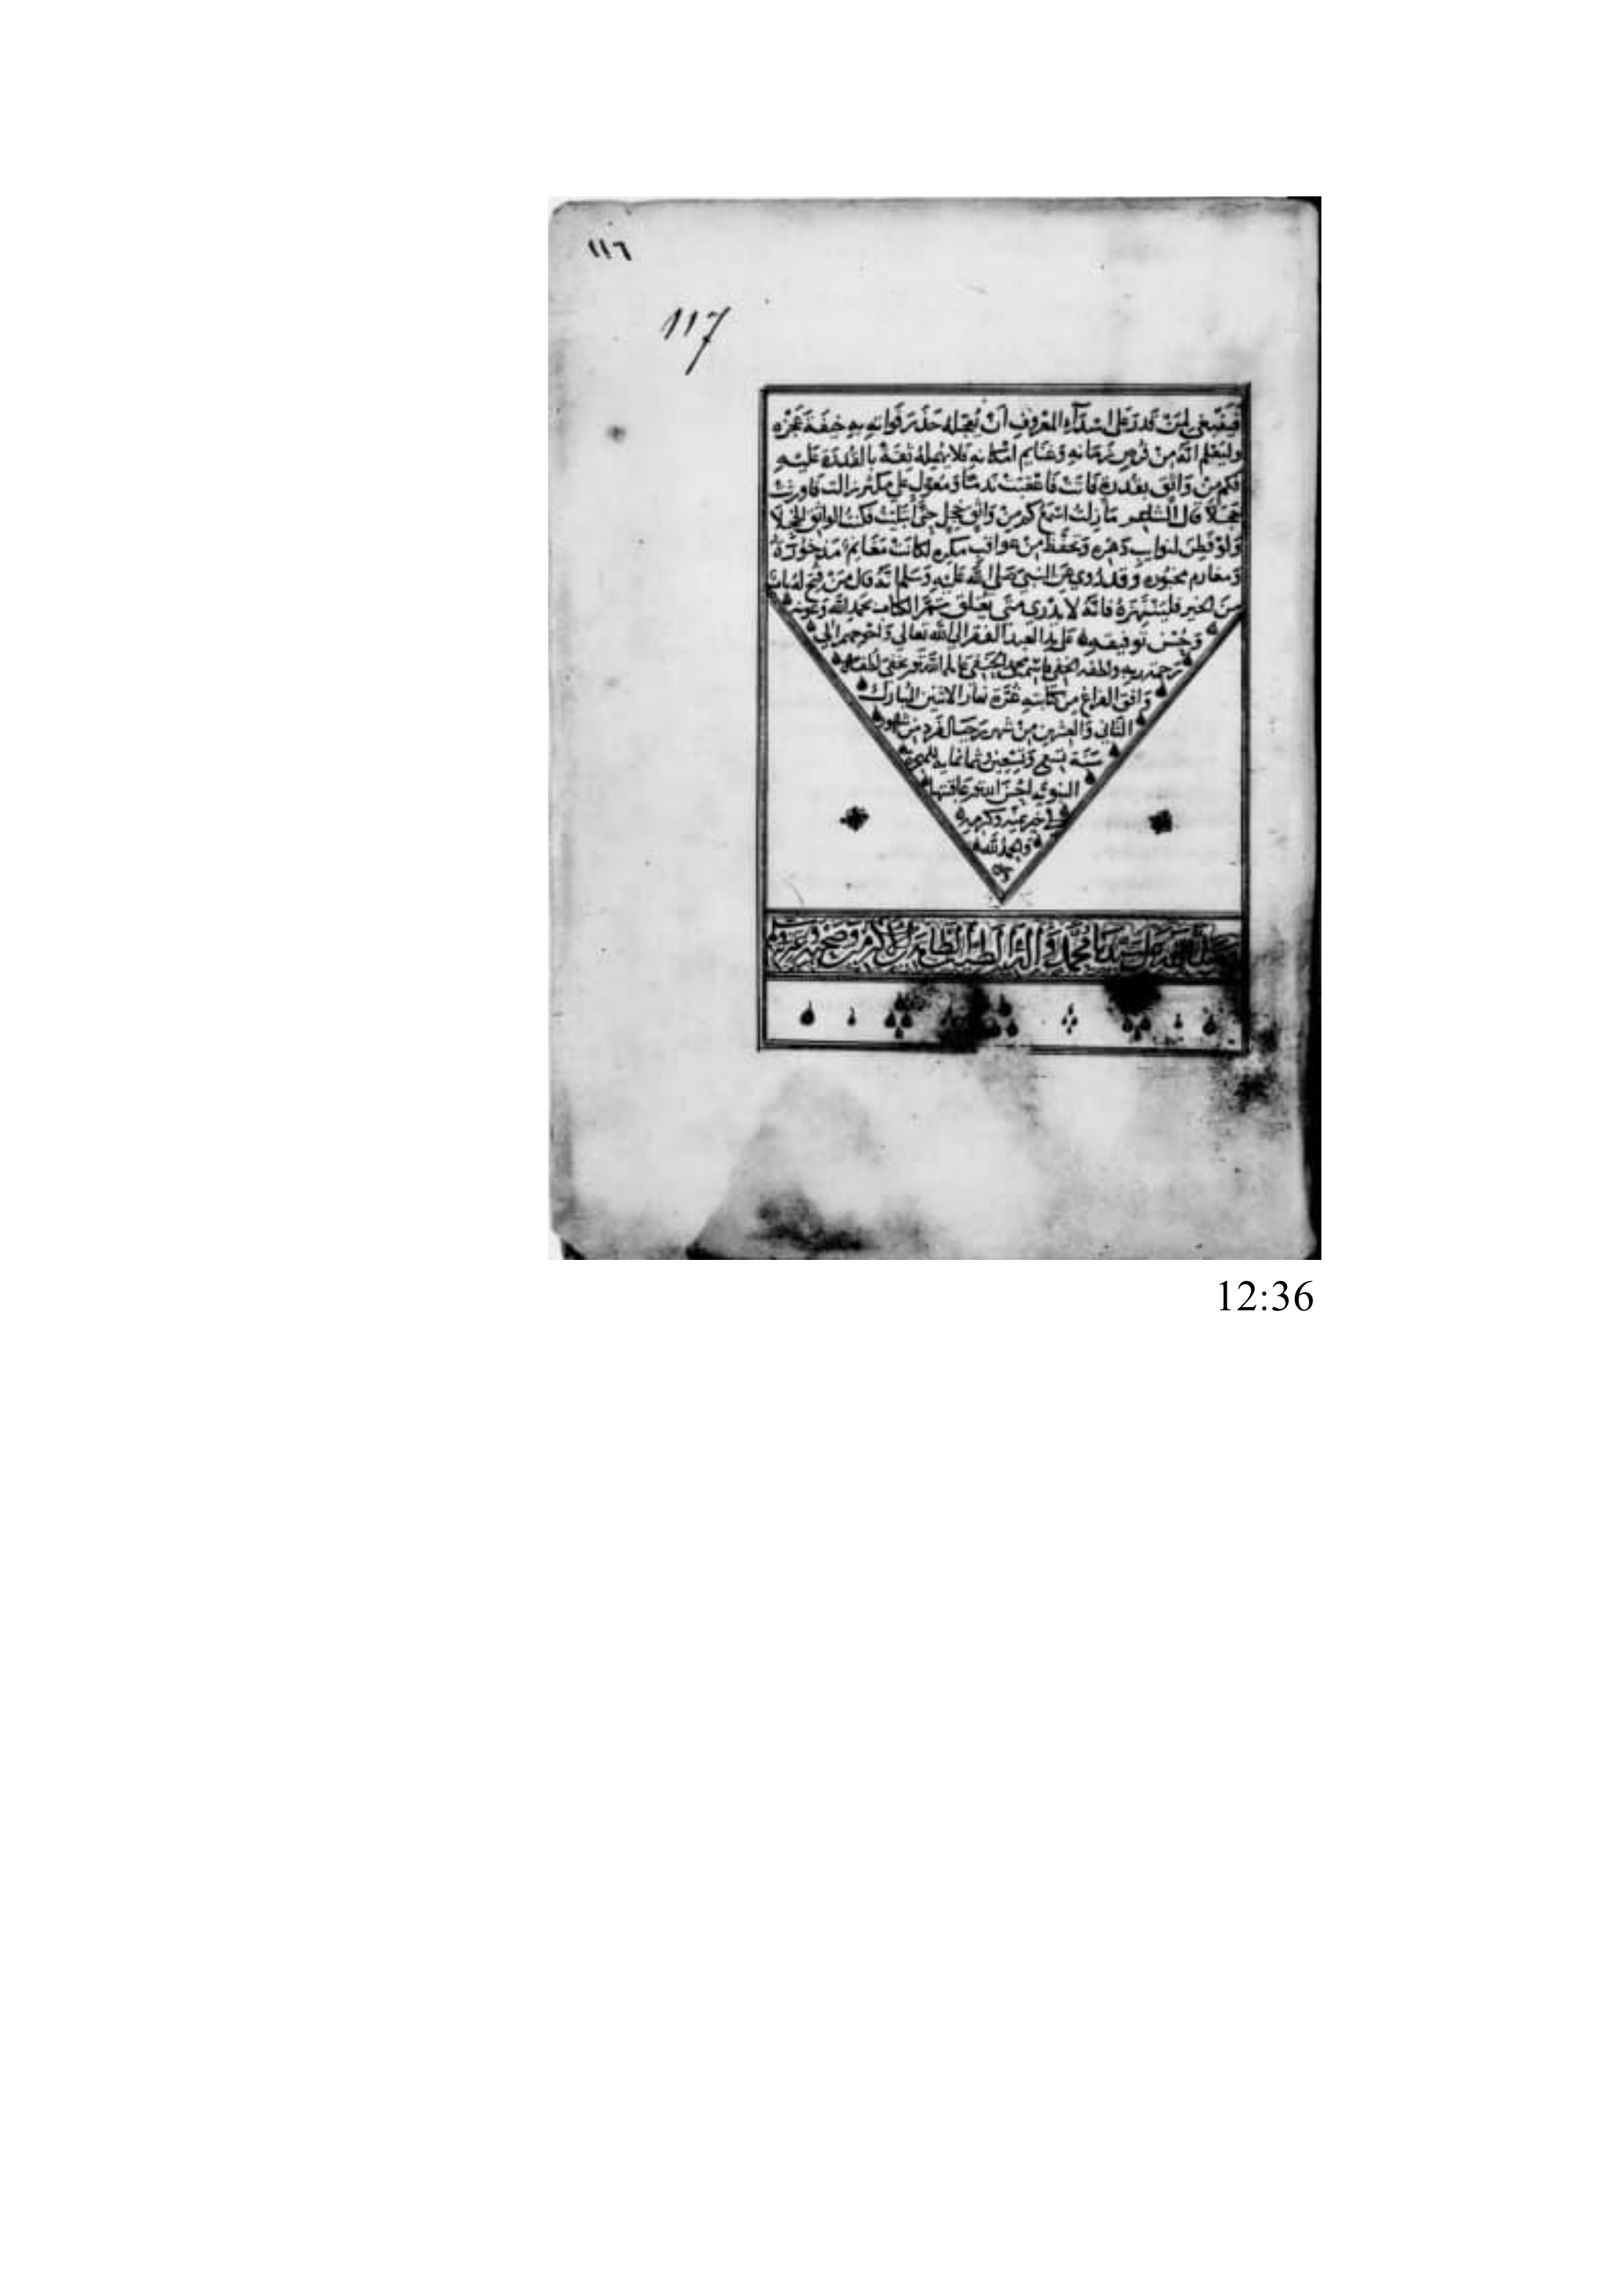 ١١٦
117
فينبغي لمن قدر على اسدآء المعروف ان يعجله حذر فواته به خيفة عجزه
وليعلم انه من فرص زمانه وغنايم امكانه فلا يهمله ثقة بالقدرة عليه
فكم من واثق بقدرة فاتت فاعقبت ندمًا ومعول على مكنة زالت فاورثت
خجلا قال الشاعر مازلت اسمع كم من واثق خجل حتى ابتليت فكنت الواثق الخجلا
ولو فطن لنوايب دهره وتحفظ من عواقب مكره لكانت مغانمه مذخورة
ومغارم مجبوره وقد روي عن النبي صلى الله عليه وسلم انه قال من فتح له باب
من الخير فلينتهزه فانه لا يدري متى يغلق تم الكتاب بحمد الله وعونه
وحسن توفيقه على يد العبد الفقير الى الله تعالى واحوجهم الى
رحمة ربه ولطفه الخفي قاسم بن محمد الحنفي عاملهما الله بخفي لطفه
وافق الفراغ من كتابته غرة نهار الاثنين المبارك
الثاني والعشرين من شهر رجب الفرد من شهور
سنة تسع وتسعين وثمانمايه للهجرة
النبويه احسن الله عاقبتها
في خير بمنه وكرمه
والحمد لله
وصلى الله على سيدنا محمد وآله الطيبين الطاهرين وصحبه وسلم
12:36